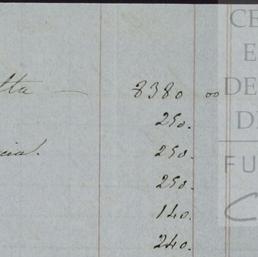 tta — 8380 00
250.
cial. 250.
250.
140.
240.
CE
E
DE
D
FU
C